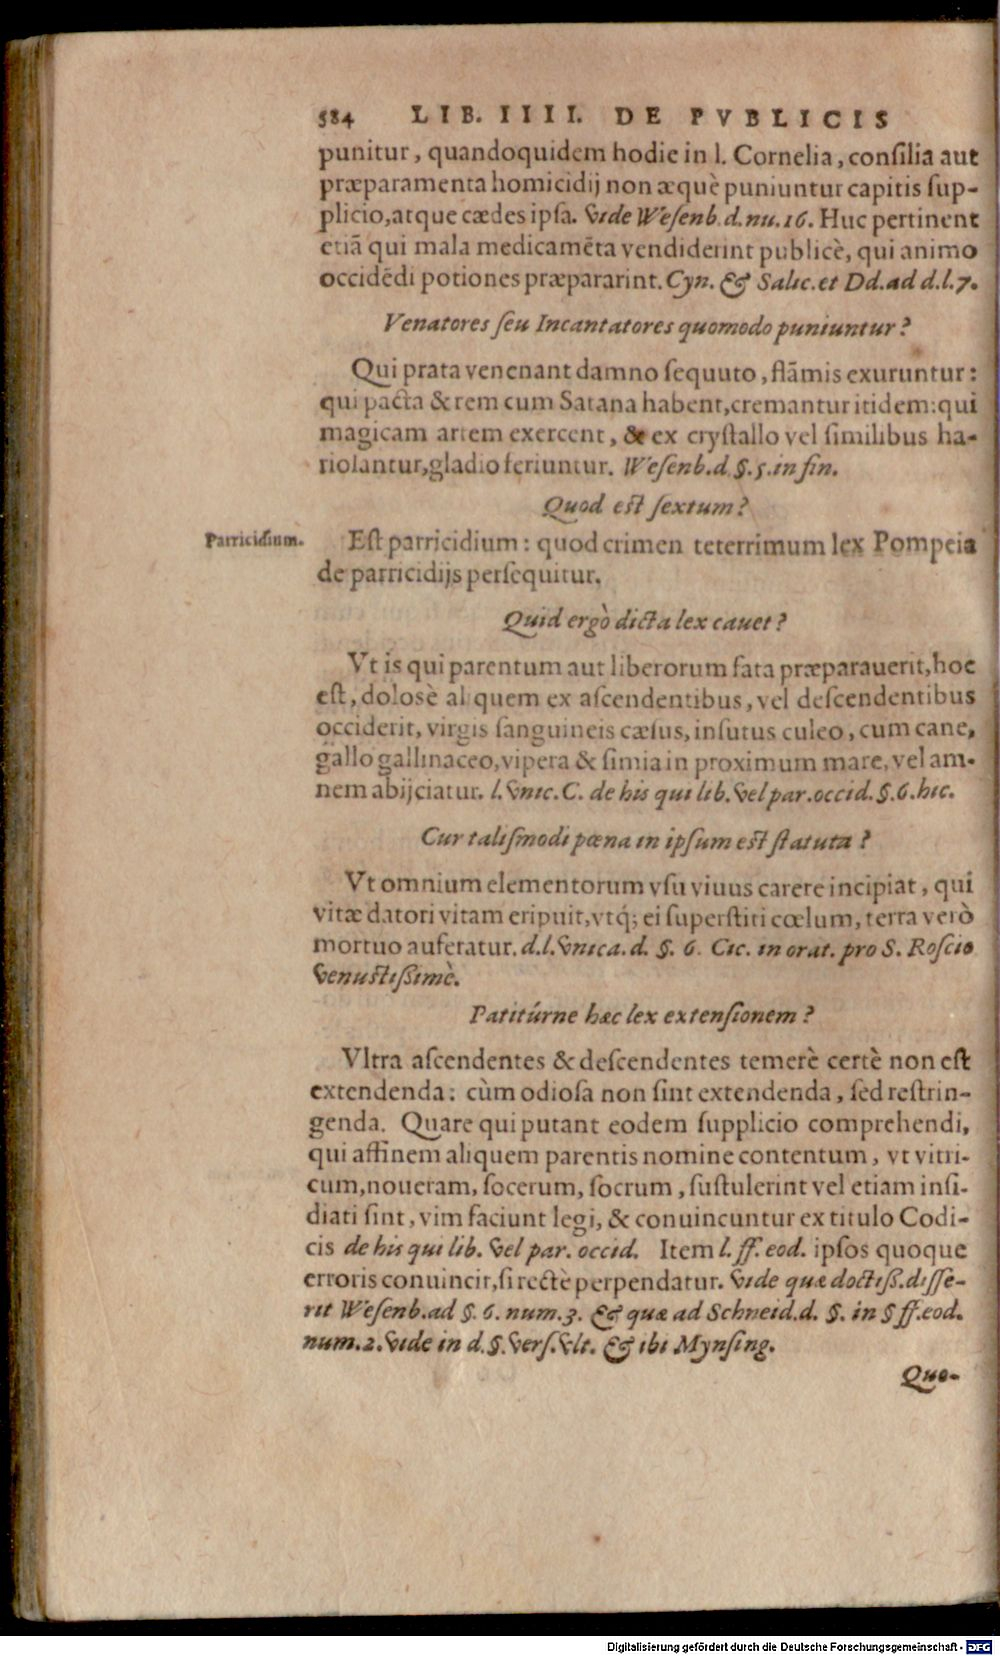 584 LIB. IIII. DE PVBLICIS
punitur, quandoquidem hodie in l. Cornelia, conſilia aut
præparamenta homicidij non æquè puniuntur capitis ſup-
plicio, atque cædes ipſa. Vide Weſenb. d. nu. 16. Huc pertinent
etiã qui mala medicamẽta vendiderint publicè, qui animo
occidẽdi potiones præpararint. Cyn. & Salic. et Dd. ad d. l. 7.
Venatores ſeu Incantatores quomodo puniuntur?
Qui prata venenant damno ſequuto, flãmis exuruntur:
qui pacta & rem cum Satana habent, cremantur itidem: qui
magicam artem exercent, & ex cryſtallo vel ſimilibus ha-
riolantur, gladio feriuntur. Weſenb. d. §. 5. in fin.
Quod est ſextum?
Parricidium.
Eſt parricidium: quod crimen teterrimum lex Pompeia
de parricidijs perſequitur.
Quid ergò dicta lex cauet?
Vt is qui parentum aut liberorum fata præparauerit, hoc
eſt, dolosè aliquem ex aſcendentibus, vel deſcendentibus
occiderit, virgis ſanguineis cæſus, inſutus culeo, cum cane,
gallo gallinaceo, vipera & ſimia in proximum mare, vel am-
nem abijciatur. l. Vnic. C. de his qui lib. Vel par. occid. §. 6. hic.
Cur taliſmodi pœna in ipſum est ſtatuta?
Vt omnium elementorum vſu viuus carere incipiat, qui
vitæ datori vitam eripuit, vtq́; ei ſuperſtiti cœlum, terra verò
mortuo auferatur. d. l. Vnica. d. §. 6. Cic. in orat. pro S. Roſcio
Venuſtißimè.
Patitúrne hæc lex extenſionem?
Vltra aſcendentes & deſcendentes temerè certè non eſt
extendenda: cùm odioſa non ſint extendenda, ſed reſtrin-
genda. Quare qui putant eodem ſupplicio comprehendi,
qui affinem aliquem parentis nomine contentum, vt vitri-
cum, nouercam, ſocerum, ſocrum, ſuſtulerint vel etiam inſi-
diati ſint, vim faciunt legi, & conuincuntur ex titulo Codi-
cis de his qui lib. Vel par. occid. Item l. ff. eod. ipſos quoque
erroris conuincit, ſi rectè perpendatur. Vide quæ doctiß. diſſe-
rit Weſenb. ad §. 6. num. 3. & quæ ad Schneid. d. §. in § ff. eod.
num. 2. Vide in d. §. Verſ. Vlt. & ibi Mynſing.
Quo-
Digitalisierung gefördert durch die Deutsche Forschungsgemeinschaft - DFG